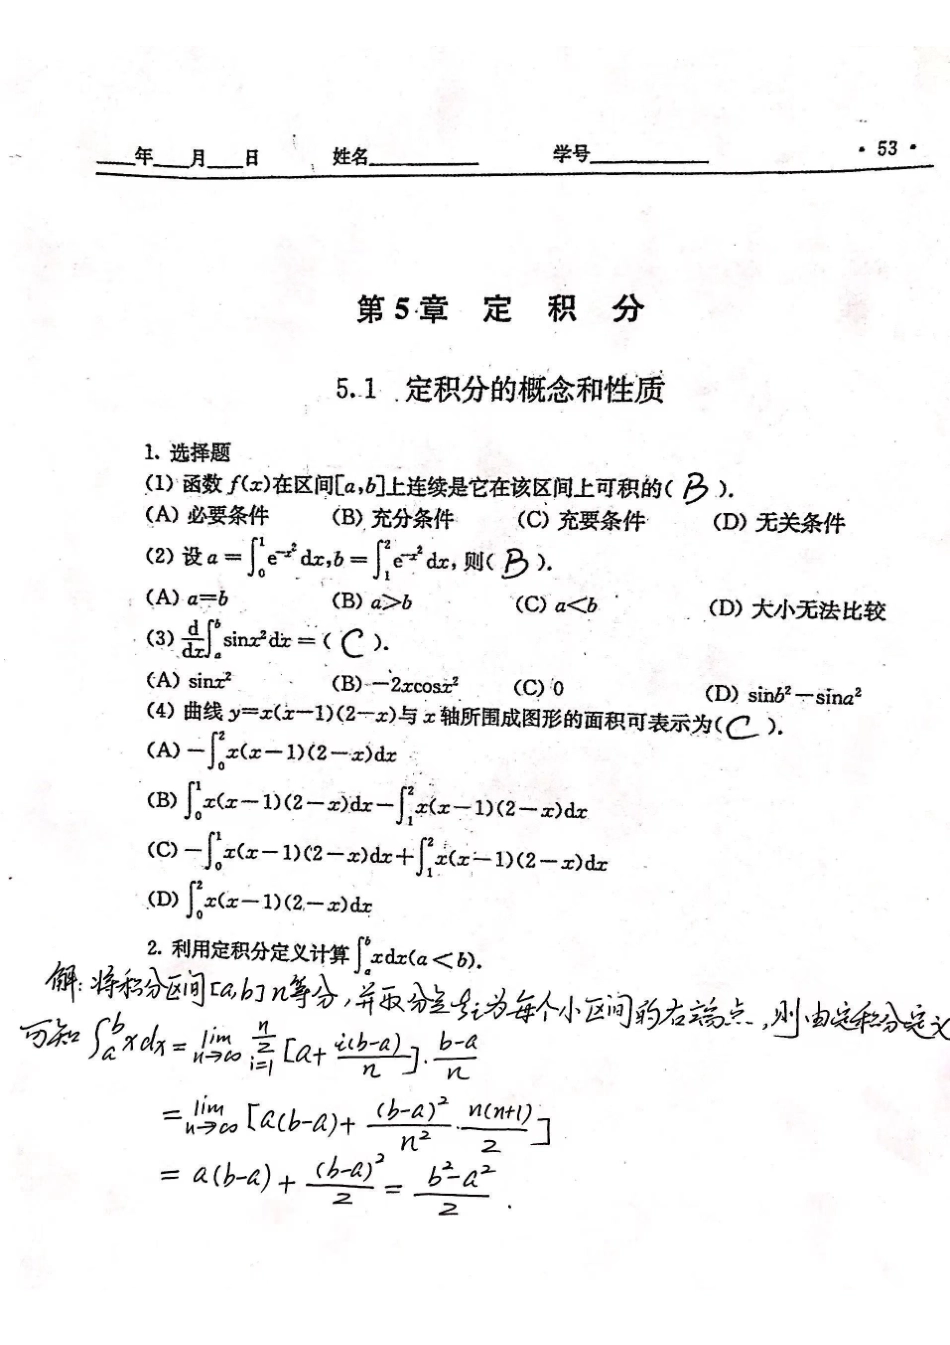 年 月 日 姓名 学号 · 53 ·
第 5 章 定 积 分
5.1 定积分的概念和性质
1. 选择题
(1) 函数 f(x)在区间[a,b]上连续是它在该区间上可积的( B ).
(A) 必要条件 (B) 充分条件 (C) 充要条件 (D) 无关条件
(2) 设 a = ∫₀¹ e^{-x²} dx, b = ∫₁² e^{-x²} dx, 则( B ).
(A) a=b (B) a>b (C) a<b (D) 大小无法比较
(3) d/dx ∫ₐᵇ sinx² dx = ( C ).
(A) sinx² (B) -2xcosx² (C) 0 (D) sinb²-sina²
(4) 曲线 y=x(x-1)(2-x)与 x 轴所围成图形的面积可表示为( C ).
(A) -∫₀² x(x-1)(2-x)dx
(B) ∫₀¹ x(x-1)(2-x)dx-∫₁² x(x-1)(2-x)dx
(C) -∫₀¹ x(x-1)(2-x)dx+∫₁² x(x-1)(2-x)dx
(D) ∫₀² x(x-1)(2-x)dx
2. 利用定积分定义计算 ∫ₐᵇ xdx(a<b).
解: 将积分区间[a,b] n等分, 并取 ξᵢ为每个小区间的右端点, 则由定积分定义
可知 ∫ₐᵇ xdx = lim_{n→∞} Σ_{i=1}^{n} [a+ i(b-a)/n]· (b-a)/n
= lim_{n→∞} [a(b-a)+ (b-a)²/n² · n(n+1)/2]
= a(b-a) + (b-a)²/2 = (b²-a²)/2 .